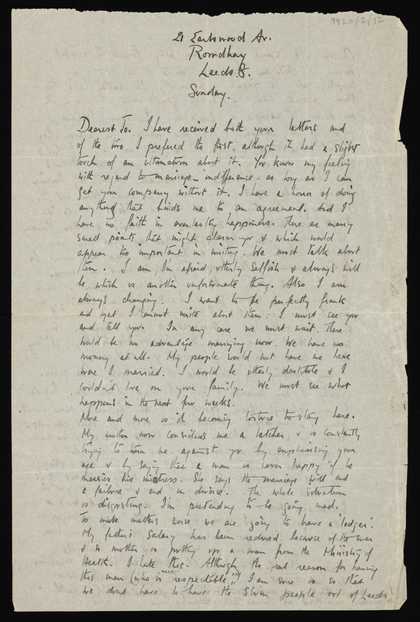 9920/2/12
21 Earlswood Av.
Roundhay
Leeds 8.
Sunday.
Dearest Jo. I have received both your letters and
of the two I preferred the first, although it had a slight
touch of an ultimatum about it. You know my feeling
with regard to marriage – indifference as long as I can
get your company without it. I have a horror of doing
anything that binds me to an agreement. And I
have no faith in everlasting happiness. There are many
small points that might alarm you & which would
appear too important in writing. We must talk about
them. I am I'm afraid, utterly selfish & always will
be which is another unfortunate thing. Also I am
always changing. I want to be perfectly frank
and yet I cannot write about them. I must see you
and tell you. In any case we must wait. There
would be no advantage marrying now. We have no
money at all. My people would not have me here
were I married. I would be utterly destitute & I
couldn't live on your family. We must see what
happens in the next few weeks.
More and more is it becoming torture to stay here.
My mother now considers me a and is constantly
trying to turn me against you by emphasising your
age & by saying that a man is never happy if he
marries his mistress. She says the marriage will end
a failure & end in divorce. The whole situation
is disgusting. I'm pretending to be going mad.
To make matters worse we are going to have a 'lodger'.
My father's salary has been reduced because of the war
& so mother is putting up a man from the Ministry of
Health. I hate this. Although the real reason for having
this man (who is "respectable") I am sure is so that
we dont have to have the people out of Leeds